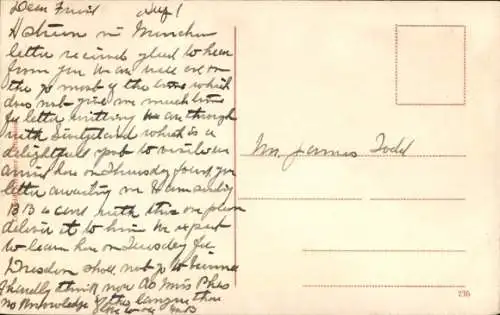 Dear Friend Aug 1
H
letter received glad to hear
from you We are well are on
the go most of the time which
does not give me much time
for letter writting We are through
with which is a
delightfull spot to visit we
here on Thursday found your
letter awaiting me
card with this one please
deliver it to him We expect
to leave here on Tuesday for
Dresden shall not go to
I hardly think nor do Miss
no knowledge of the language
Mr James Todd
236